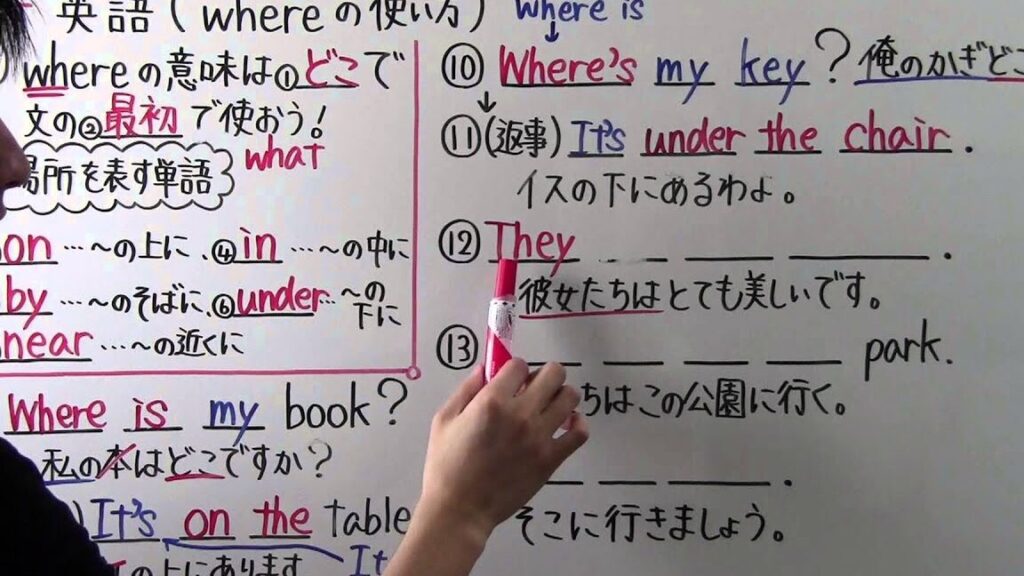 英語(whereの使い方)
whereの意味は①どこで
文の②最初で使おう!
what
場所を表す単語
on…~の上に、④in…~の中に
by…~のそばに、⑥under…~の下に
near…~の近くに
Where is my book?
私の本はどこですか?
It's on the table
の上にあります
It
where is
⑩Where's my key? 俺のかぎどこ
⑪(返事)It's under the chair.
イスの下にあるわよ。
⑫They ___ ___ ___.
彼女たちはとても美しいです。
⑬ ___ ___ ___ ___ park.
ちはこの公園に行く。
___ ___ ___.
そこに行きましょう。